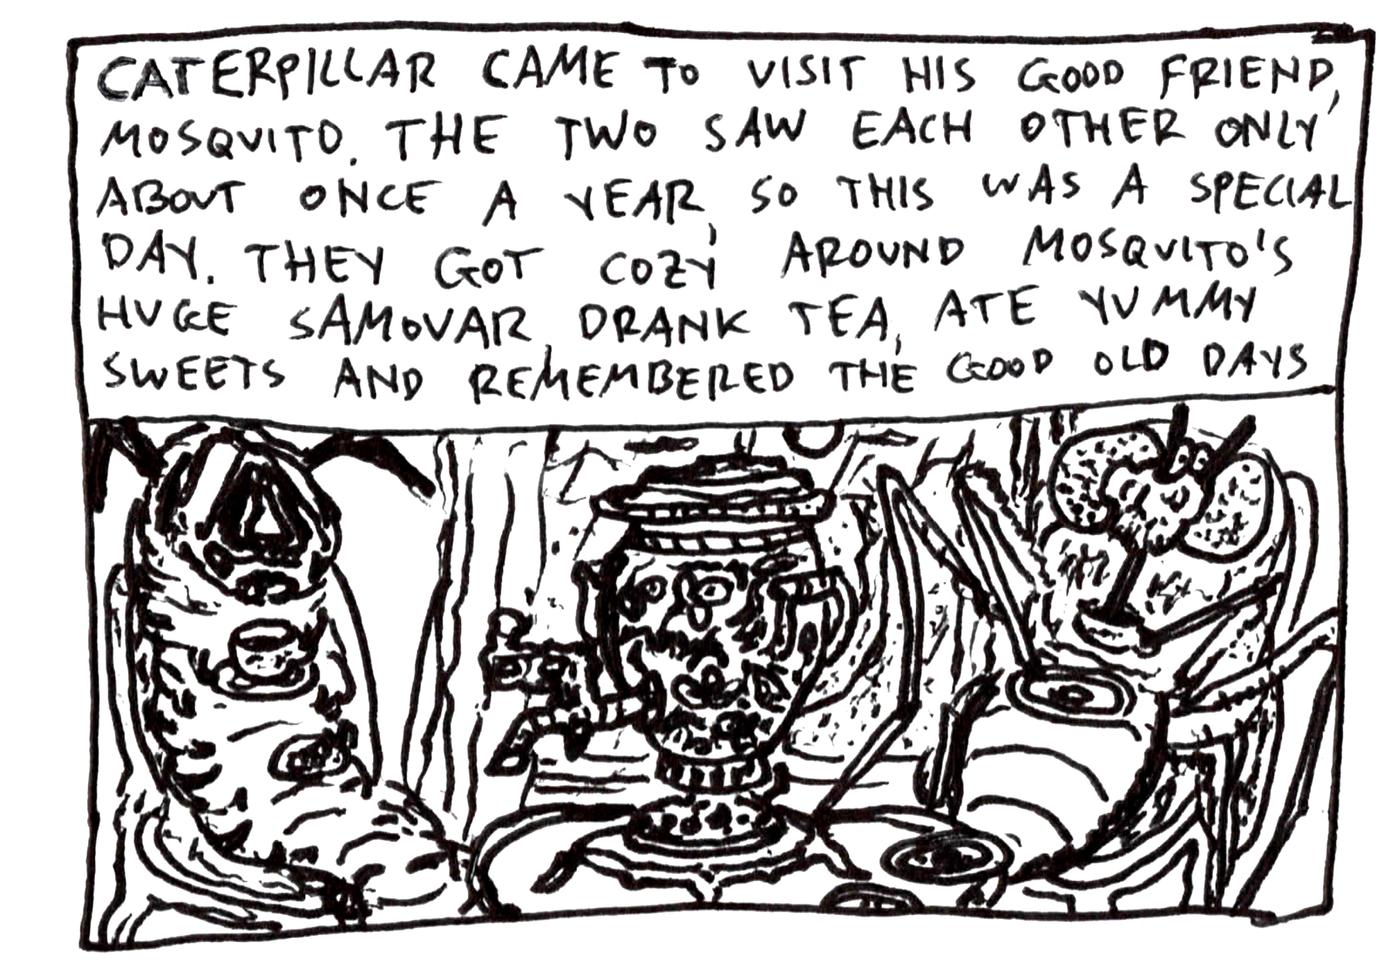 CATERPILLAR CAME TO VISIT HIS GOOD FRIEND,
MOSQUITO. THE TWO SAW EACH OTHER ONLY
ABOUT ONCE A YEAR, SO THIS WAS A SPECIAL
DAY. THEY GOT COZY AROUND MOSQUITO'S
HUGE SAMOVAR, DRANK TEA, ATE YUMMY
SWEETS AND REMEMBERED THE GOOD OLD DAYS